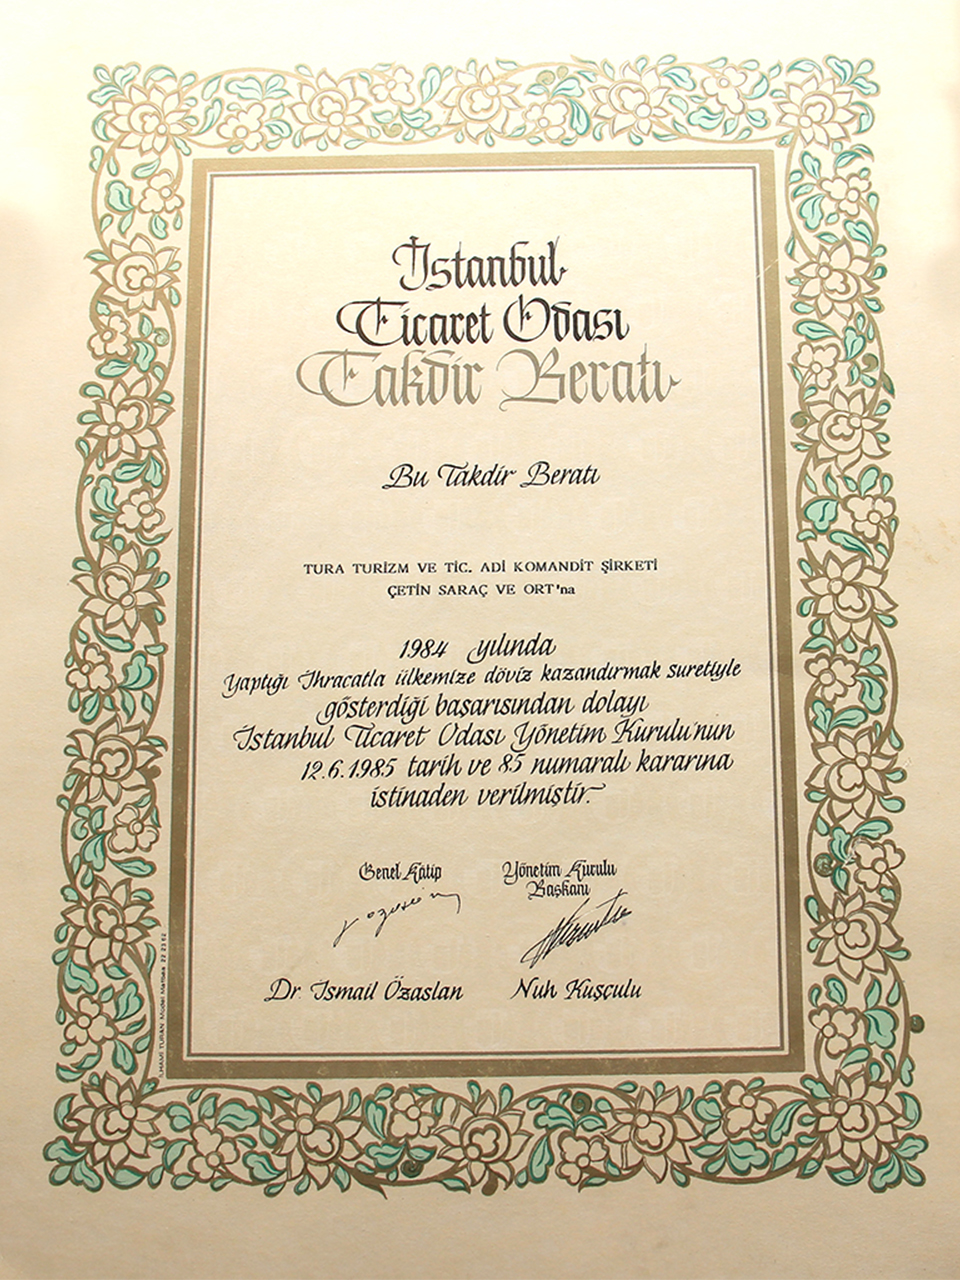 İstanbul
Ticaret Odası
Takdir Beratı
Bu Takdir Beratı
TURA TURİZM VE TİC. ADİ KOMANDİT ŞİRKETİ
ÇETİN SARAÇ VE ORT'na
1984 yılında
Yaptığı İhracatla ülkemize döviz kazandırmak suretiyle
gösterdiği başarısından dolayı
İstanbul Ticaret Odası Yönetim Kurulu'nun
12.6.1985 tarih ve 85 numaralı kararına
istinaden verilmiştir.
Genel Kâtip
Yönetim Kurulu
Başkanı
Dr. İsmail Özaslan
Nuh Kuşçulu
İLHAMİ TURAN Model Matbaa 22 23 62